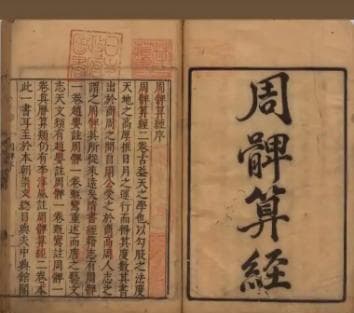 周髀算经
周髀算經序
周髀算經二卷古蓋天之學也以勾股之法度
天地之高厚推日月之運行而得其度數其書
出於商周之間自周公受之於商高周人志之
謂之周髀其所從來遠矣隋書經籍志有周髀
一卷趙嬰註周髀一卷甄鸞重述而唐之藝文
志天文類有趙嬰註周髀一卷甄鸞註周髀一
卷其曆算類仍有李淳風註周髀算經二卷本
此一書耳至於本朝崇文總目與夫中興館閣